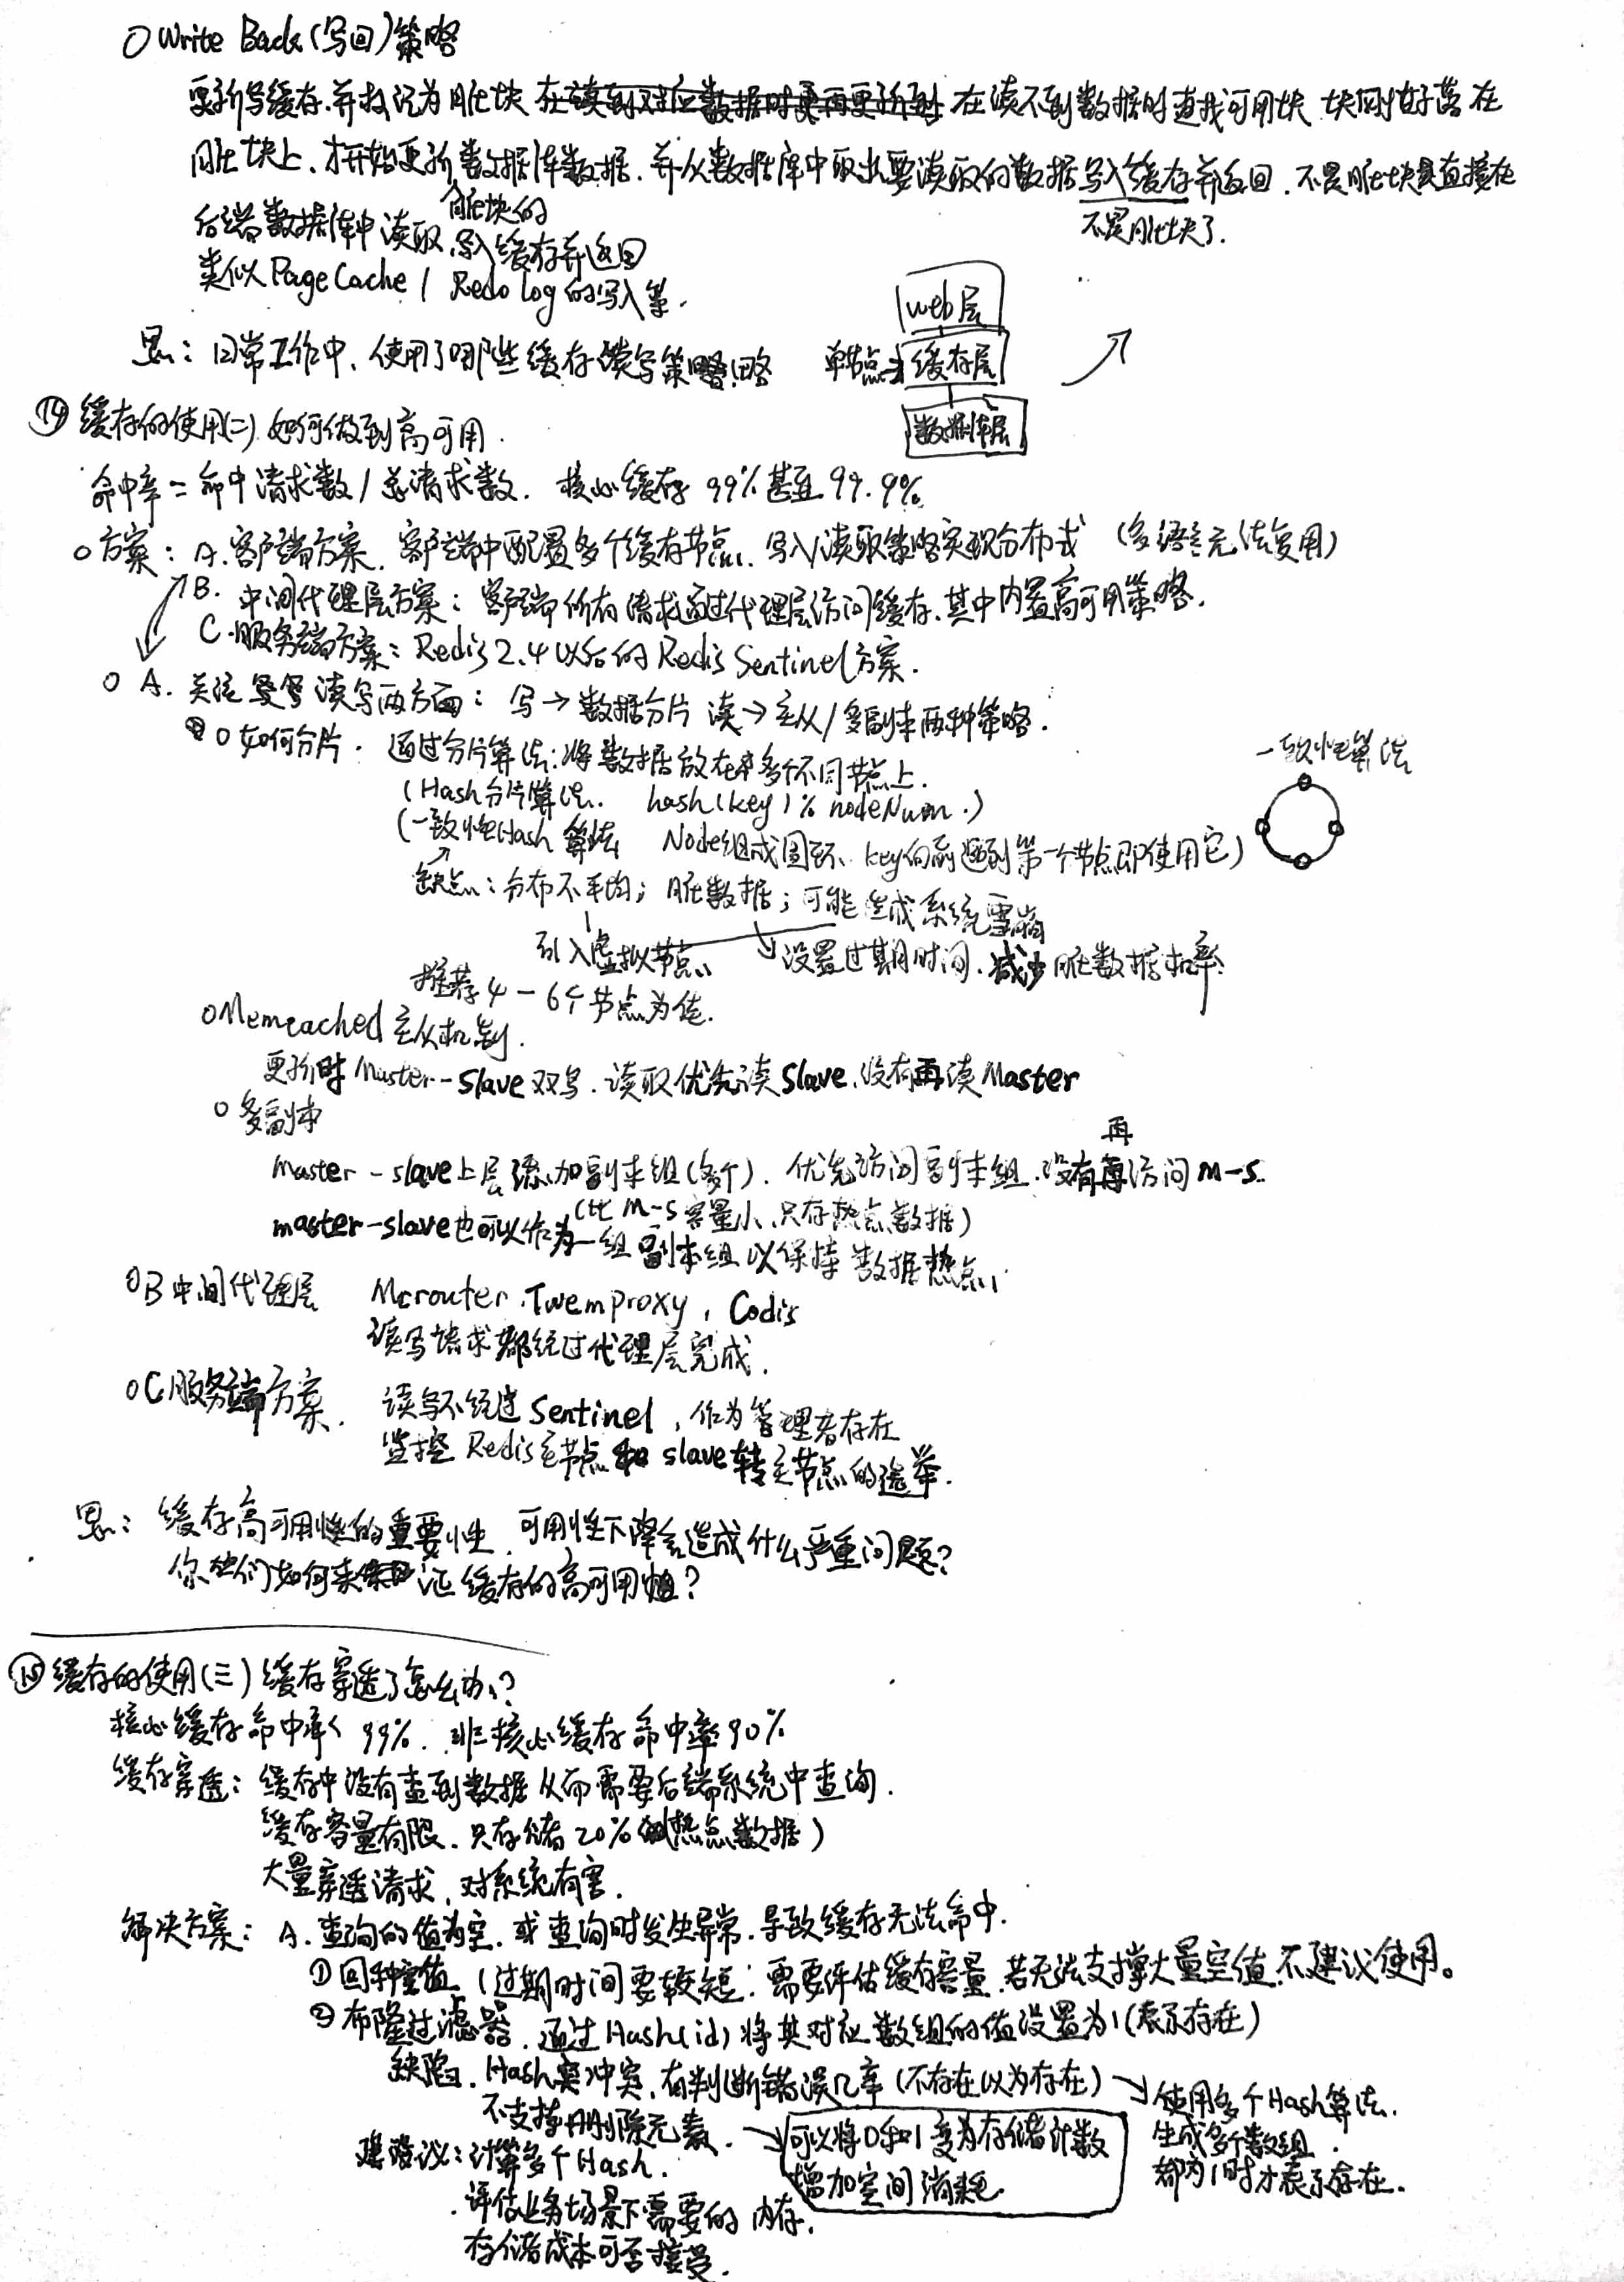 ○ Write Back(写回)策略
更新写缓存.并标记为脏块 在读不到数据时查找可用块 块刚好落在
脏块上.才开始更新数据库数据.并从数据库中取出要读取的数据写入缓存并返回.不是脏块是直接在
脏块的
不是脏块了.
后端数据库中读取.写入缓存并返回
类似PageCache / Redo log的写入策.
web层
思:日常工作中,使用了哪些缓存读写策略
单节点→缓存层
数据库层
⑭缓存的使用(二)如何做到高可用.
命中率=命中请求数/总请求数. 核心缓存 99%甚至99.9%
○方案:A.客户端方案.客户端中配置多个缓存节点、写入/读取策略实现分布式 (多语言无法复用)
B.中间代理层方案:客户端所有请求通过代理层访问缓存.其中内置高可用策略.
C.服务端方案:Redis2.4以后的Redis Sentinel方案.
○ A.关注 读写两方面:写→数据分片 读→主从/多副本两种策略.
○如何分片. 通过分片算法:将数据放在多个不同节点上.
一致性算法
(Hash分片算法. hash(key)% nodeNum.)
(一致性Hash算法 Node组成圆环、key向前遇到第一个节点即使用它)
缺点:分布不平均;脏数据;可能造成系统雪崩
引入虚拟节点
设置过期时间.减少脏数据机率.
推荐4-6个节点为佳.
○Memcached主从机制.
更新时Master-Slave双写.读取优先读Slave,没有再读Master
○多副本
再
master-slave上层添加副本组(多个). 优先访问副本组.没有 访问M-S.
(比M-S容量小、只存热点数据)
master-slave也可以作为一组副本组以保持数据热点.
○B中间代理层 Mcrouter,Twemproxy,Codis
读写请求都经过代理层完成.
○C服务端方案. 读写不经过Sentinel,作为管理者存在
监控Redis主节点和slave转主节点的选举.
思:缓存高可用性的重要性 可用性下降会造成什么严重问题?
你们如何来保证缓存的高可用性?
⑮缓存的使用(三)缓存穿透了怎么办?
核心缓存命中率 99%. 非核心缓存命中率90%
缓存穿透:缓存中没有查到数据从而需要后端系统中查询.
缓存容量有限.只存储20%的热点数据)
大量穿透请求,对系统有害.
解决方案:A.查询的值为空.或查询时发生异常.导致缓存无法命中.
①回种空值(过期时间要较短:需要评估缓存容量.若无法支撑大量空值.不建议使用。
②布隆过滤器.通过Hash(id)将其对应数组的值设置为1(表示存在)
缺陷.Hash冲突.有判断错误几率(不存在以为存在)→使用多个Hash算法.
生成多个数组.
都为1时才表示存在.
不支持删除元素.→可以将0和1变为存储计数
增加空间消耗.
建议:计算多个Hash.
.评估业务场景下需要的内存.
存储成本可否接受.